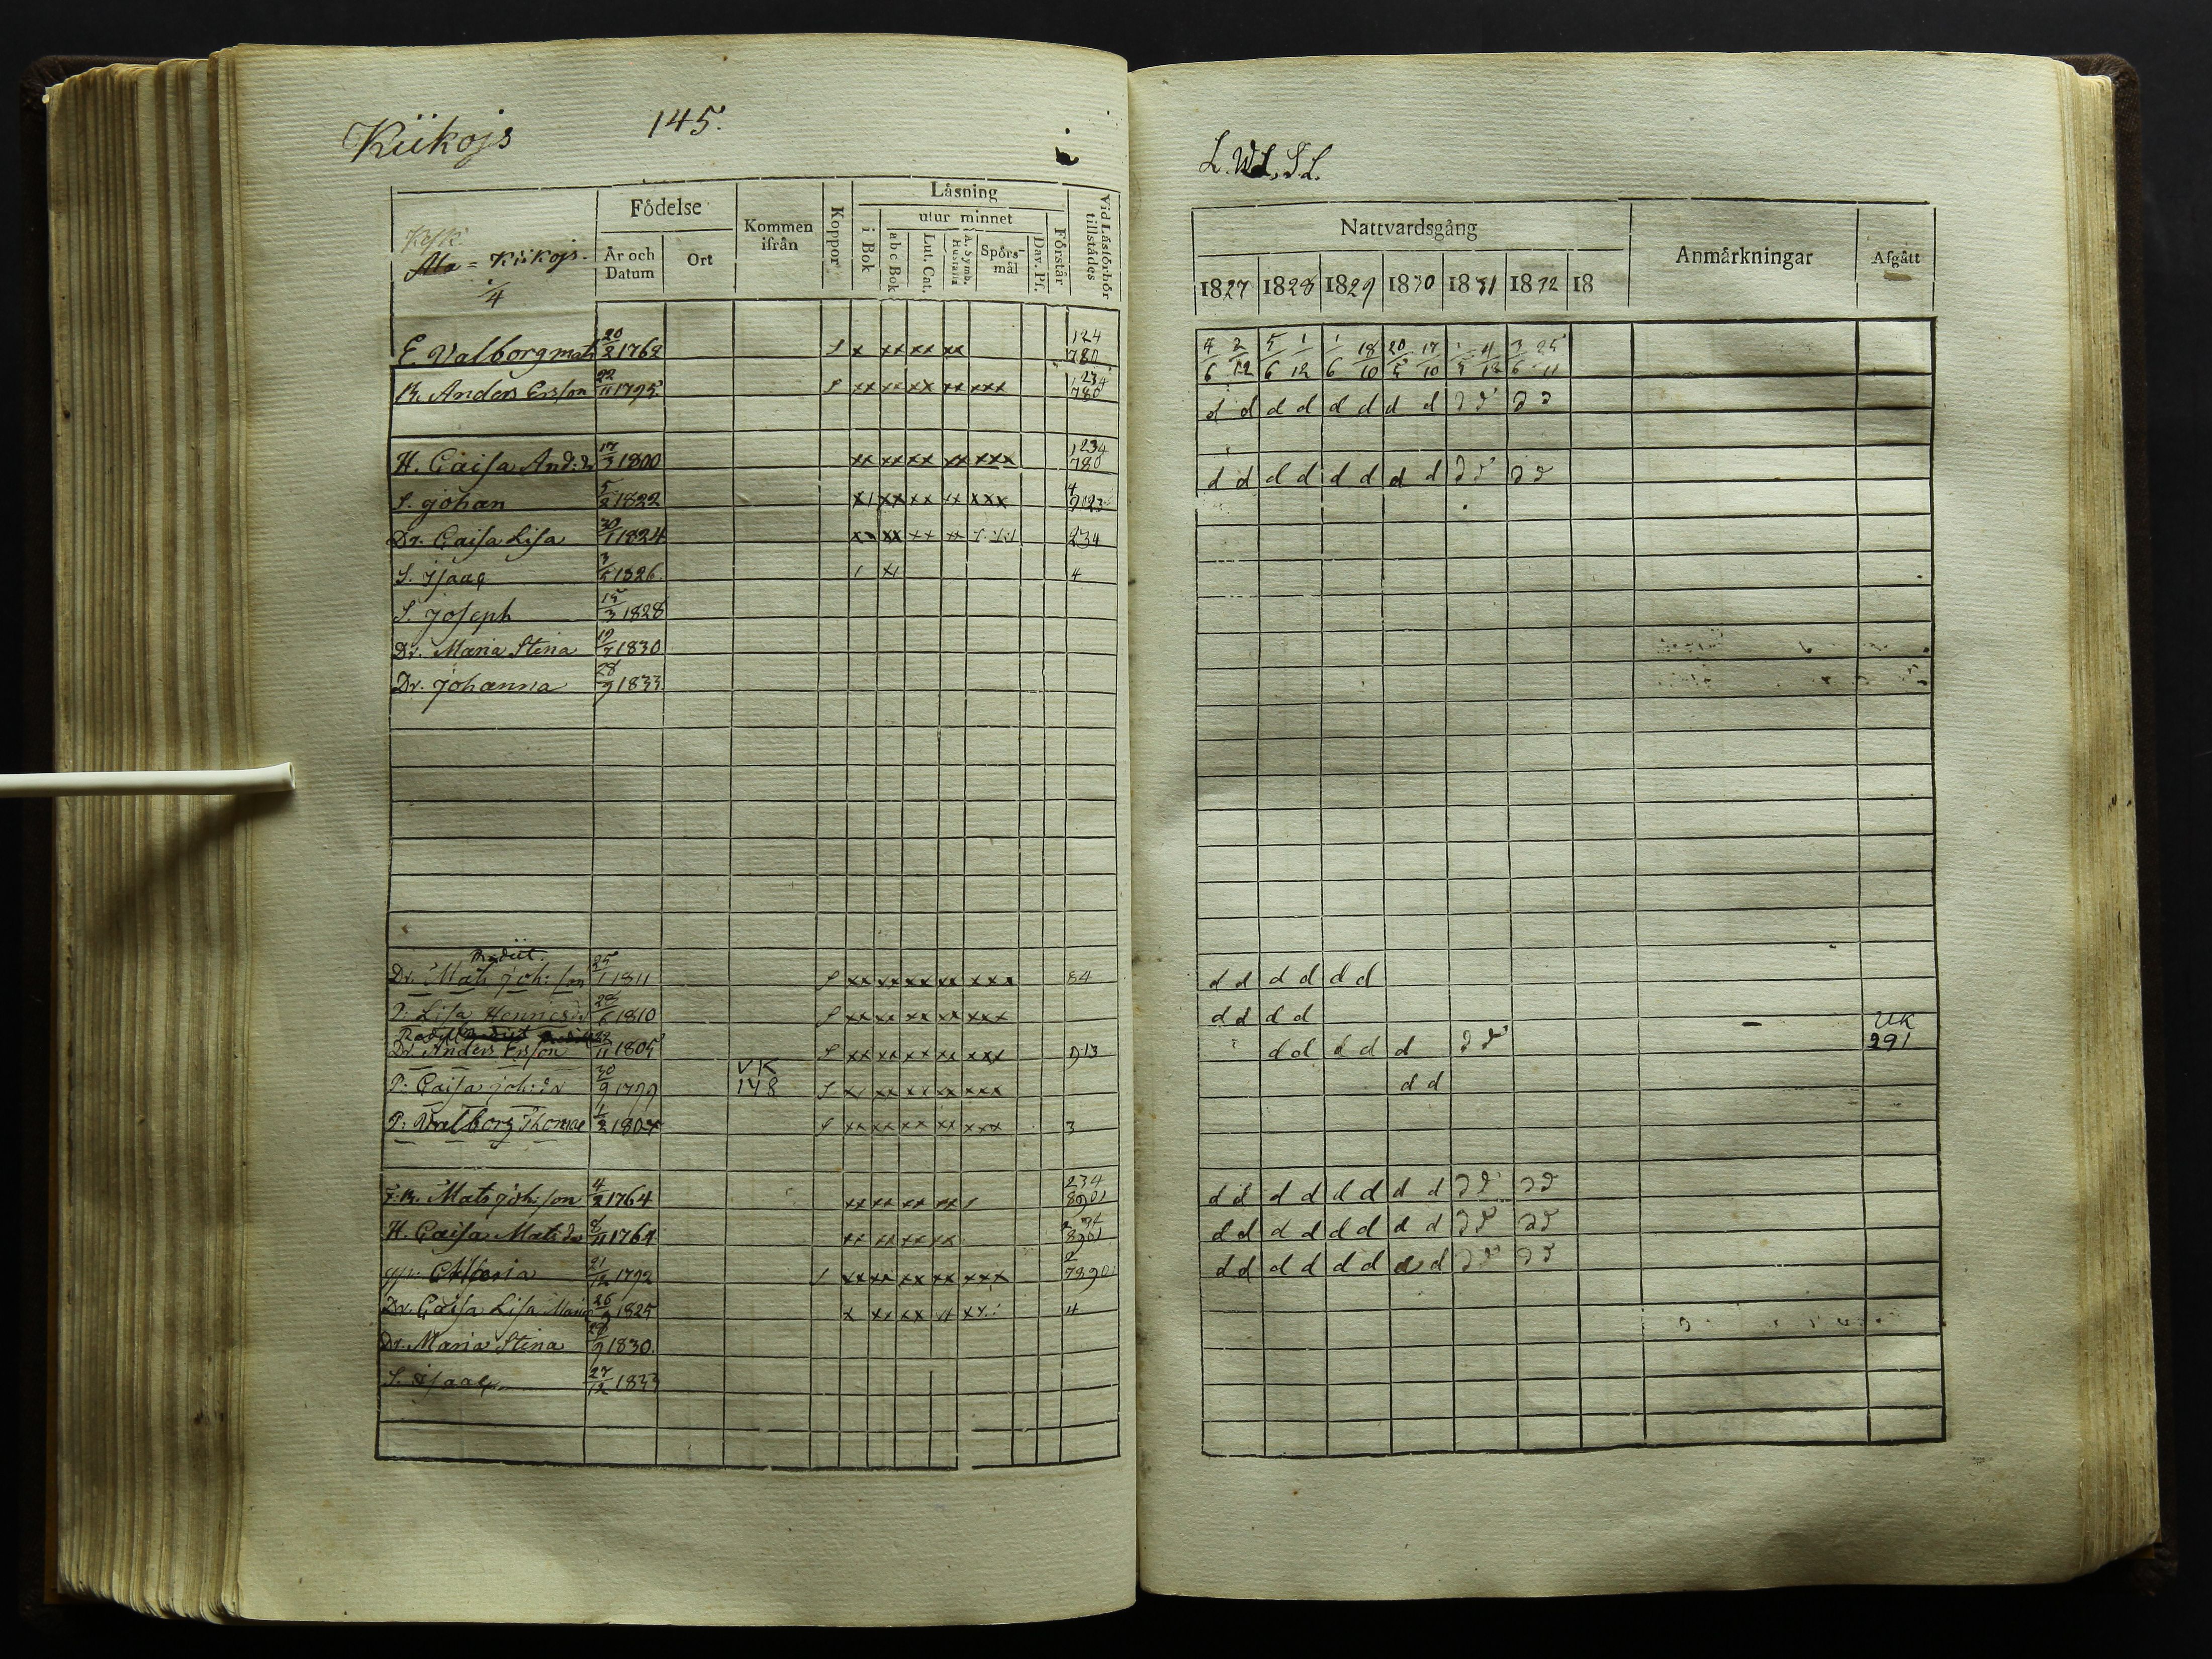 Kükojs 145.
Födelse
Kommen ifrån
Koppor
Låsning
utur minnet
i Bok
a b c Bok
Lut. Cat.
A. Symb. Hustafla
Spörs-mål
Dav. Ps.
Förstår
Vid Låsförhör tillstådes
År och Datum
Ort
Kükojs.
1/4
E. Valborg mats 20/2 1762 S x xx xx xx 124 780
B. Anders Ersson 22/11 1795. S xx xx xx xx xxx 1234 780
H. Caisa And:dr 17/3 1800 xx xx xx xx xxx 1234 780
S. Johan 5/2 1822 x/ xx xx xx xxx 4
Dr. Caisa Lisa 30/1 1824 xx xx xx 234
S. Isaac 3/5 1826. / x/ 4
S. Joseph 15/3 1828
Dr. Maria Stina 19/7 1830
Dr. Johanna 28/9 1833.
Rediit.
Dr. Mats Joh:son 25/1 1811 S xx xx xx xx xxx 84
P: Lisa Hennesdr 28/6 1810 S xx xx xx xx xxx
Dr. Anders Ersson 22/11 1805 S xx xx xx xx xxx 913
P: Caisa Joh:dr 30/9 1799 VK 148 S x/ xx xx xx xxx
P: Valborg Thomae 1/2 1804 S xx xx xx xx xxx 3
F.B. Mats Joh:son 4/2 1764 xx xx xx xx / 234 8901
H. Caisa Matsdr 8/11 1764 xx xx xx xx 234 8901
Maria 21/12 1792 S xx xx xx xx xxx 2 78901
Dr. Caisa Lisa Maria 26/9 1825 x xx xx 4
Dr. Maria Stina 28/9 1830.
S. Isaac 27/12 1833
L. WL. S.L.
Nattvardsgång
Anmårkningar
Afgått
1827 1828 1829 1830 1831 1832 18
4/6 2/12 5/6 1/12 1/6 18/10 20/5 17/10 1/5 4/12 3/6 25/11
d d d d d d d d d d d d
d d d d d d d d d d d d
d d d d d d
d d d d
d d d d d d d UK 291
d d
d d d d d d d d d d d d
d d d d d d d d d d d d
d d d d d d d d d d d d